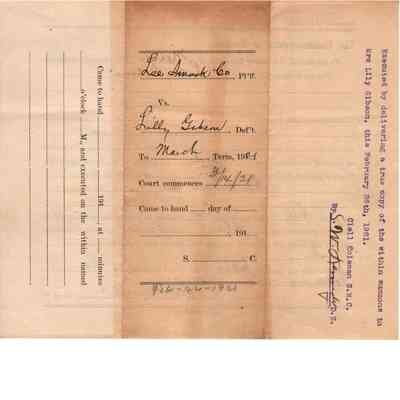 Came to hand 191 at minutes
o'clock M., and executed on the within named
Lee Co, Pl'ff.
Vs.
Lilly Gibson Def't.
To March Term, 191
Court commences 3/14/21
Came to hand day of
, 191
S. C.
Feb-26-1921
Executed by delivering a true copy of the within summons to
Mrs Lily Gibson, this February 26th, 1921.
Clell Coleman S.M.C.
By D.S.